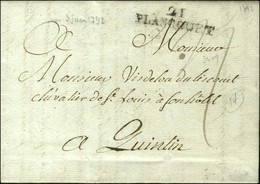 3 Juin 1792
21
PLANCOUET
A Monsieur
Monsieur Visdelou du Liscouet
chevalier de St Louis à son hôtel
a Quintin